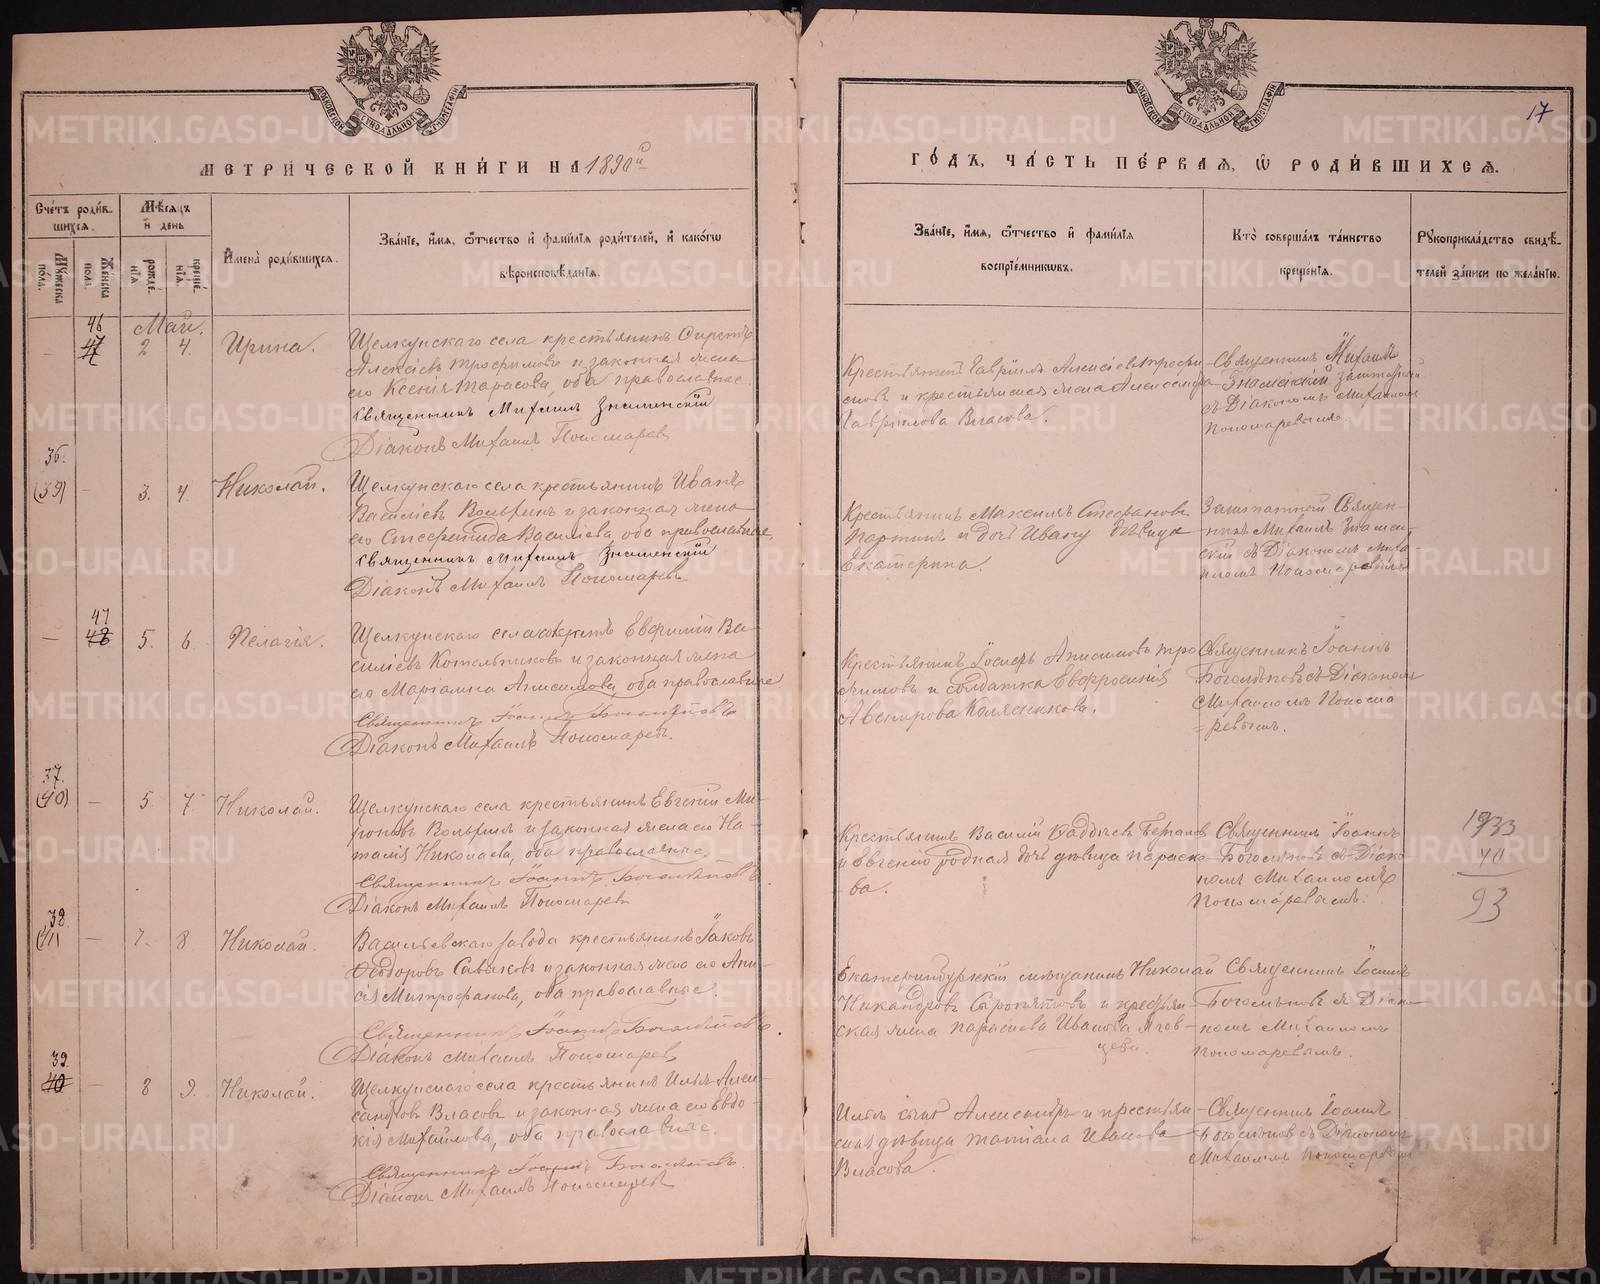 17
МЕТРИЧЕСКОЙ КНИГИ НА 1890й
ГОДЪ, ЧАСТЬ ПЕРВАЯ, Ѡ РОДИВШИХСЯ.
Счетъ родившихся.
Мѣсяцъ и день
Мужеска пола.
Женска пола.
рожденія
крещенія.
Имена родившихся.
Званіе, имя, ѿчество и фамилія родителей, и какогѡ
вѣроисповѣданія.
Званіе, имя, ѿчество и фамилія
воспріемниковъ.
Кто совершалъ таинство
крещенія.
Рукоприкладство свидѣ-
телей записи по желанію.
Май.
46
47
2 4. Ирина.
Щелкунскаго села крестьянинъ
Алексіевъ Трофимовъ и законная жена
его Ксенія Тарасова, оба православные.
Священникъ Михаилъ Знаменскій
Діаконъ Михаилъ Пономаревъ
Крестьянинъ Гавріилъ Алексіевъ Трофи-
мовъ и крестьянская жена Александра
Гавріилова Власова.
Священникъ Михаилъ
Знаменскій заштатный
съ Діакономъ Михаиломъ
Пономаревымъ
36.
(39) - 3. 4. Николай.
Щелкунскаго села крестьянинъ Иванъ
Василіевъ Волыхинъ и законная жена
его Стефанида Василіева, оба православные.
Священникъ Михаилъ Знаменскій
Діаконъ Михаилъ Пономаревъ
Крестьянинъ Максимъ Стефановъ
и дочь Ивану дѣвица
Екатерина.
Заштатной Священ-
никъ Михаилъ Знамен-
скій съ Діакономъ Миха-
иломъ Пономаревымъ
47
— 48 5. 6. Пелагія.
Щелкунскаго села Евфимій Ва-
силіевъ Котельниковъ и законная жена
его Маріамна Анисимова, оба православные
Священникъ Іоаннъ Боголѣповъ
Діаконъ Михаилъ Пономаревъ.
Крестьянинъ Іосифъ Анисимовъ Тро-
фимовъ и солдатка Евфросинія
Авенирова Колясникова.
Священникъ Іоаннъ
Боголѣповъ съ Діакономъ
Михаиломъ Понома
=ревымъ.
37.
(40) — 5 7. Николай.
Щелкунскаго села крестьянинъ Евгеній Ми-
роновъ Волыхинъ и законная жена его На-
талія Николаева, оба православные.
Священникъ Іоаннъ Боголѣповъ
Діаконъ Михаилъ Пономаревъ
Крестьянинъ Василій
и Евгенію родная дочь дѣвица Параске-
ва.
Священникъ Іоаннъ
Боголѣповъ съ Діако-
номъ Михаиломъ
Пономаревымъ.
1933
40
93
38.
(41) — 7. 8. Николай.
Васильевскаго завода крестьянинъ Іаковъ
Ѳеодоровъ и законная жена его Ани-
сія Митрофанова, оба православные.
Священникъ Іоаннъ Боголѣповъ.
Діаконъ Михаилъ Пономаревъ
Екатеринбургскій мѣщанинъ Николай
Никандровъ и крестьян-
ская жена Параскева Иванова Ягов-
цева.
Священникъ Іоаннъ
Боголѣповъ съ Діако-
номъ Михаиломъ
Пономаревымъ.
39.
40 — 8 9. Николай.
Щелкунскаго села крестьянинъ Илья Алек-
сандровъ Власовъ и законная жена его Евдо-
кія Михайлова, оба православные.
Священникъ Іоаннъ Боголѣповъ.
Діаконъ Михаилъ Пономаревъ
сынъ Александръ и крестьян-
ская дѣвица Татіана Иванова
Власова.
Священникъ Іоаннъ
Боголѣповъ съ Діакономъ
Михаиломъ Пономаревымъ
METRIKI.GASO-URAL.RU